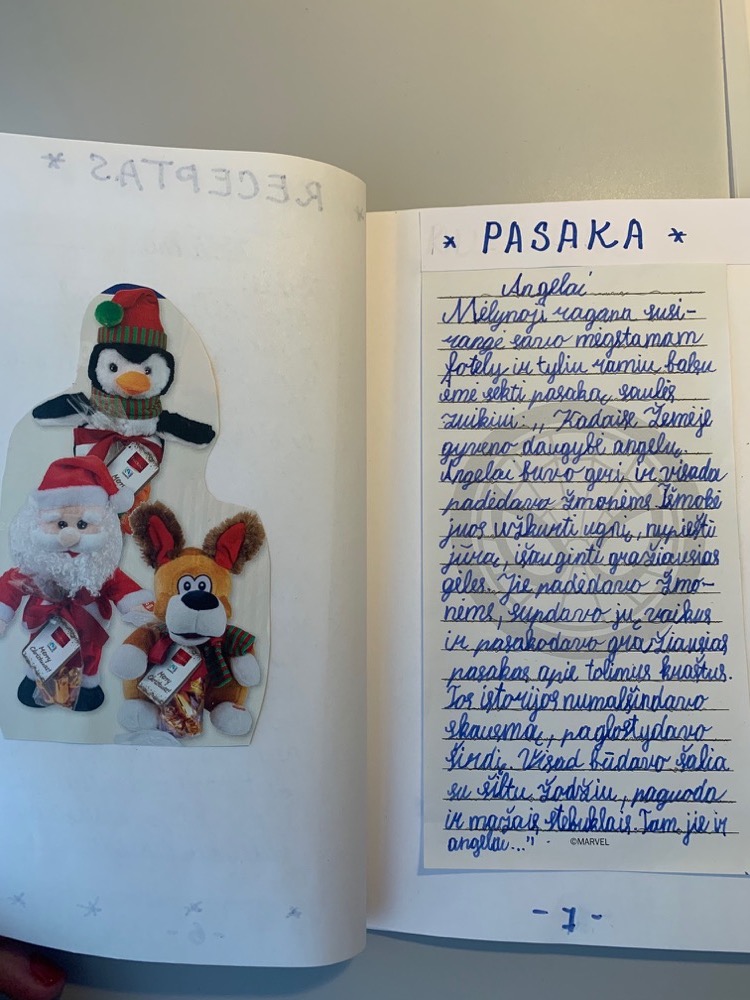 RECEPTAS *
Merry Christmas
* PASAKA *
Angelai
Mėlynoji ragana susi-
rangė savo mėgstamam
fotely ir tyliu ramiu balsu
ėmė sekti pasaką saulės
zuikiui: ,, Kadaise Žemėje
gyveno daugybė angelų.
Angelai buvo geri ir visada
padėdavo žmonėms. Išmokė
juos užkurti ugnį, nupiešti
jūrą, išauginti gražiausias
gėles. Jie padėdavo žmo-
nėms, supdavo jų vaikus
ir pasakodavo gražiausias
pasakas apie tolimus kraštus.
Tos istorijos numalšindavo
skausmą, paglostydavo
širdį. Visad būdavo šalia
su šiltu žodžiu, paguoda
ir mažais stebuklais. Tam jie ir
angelai..."
©MARVEL
- 6 -
- 7 -